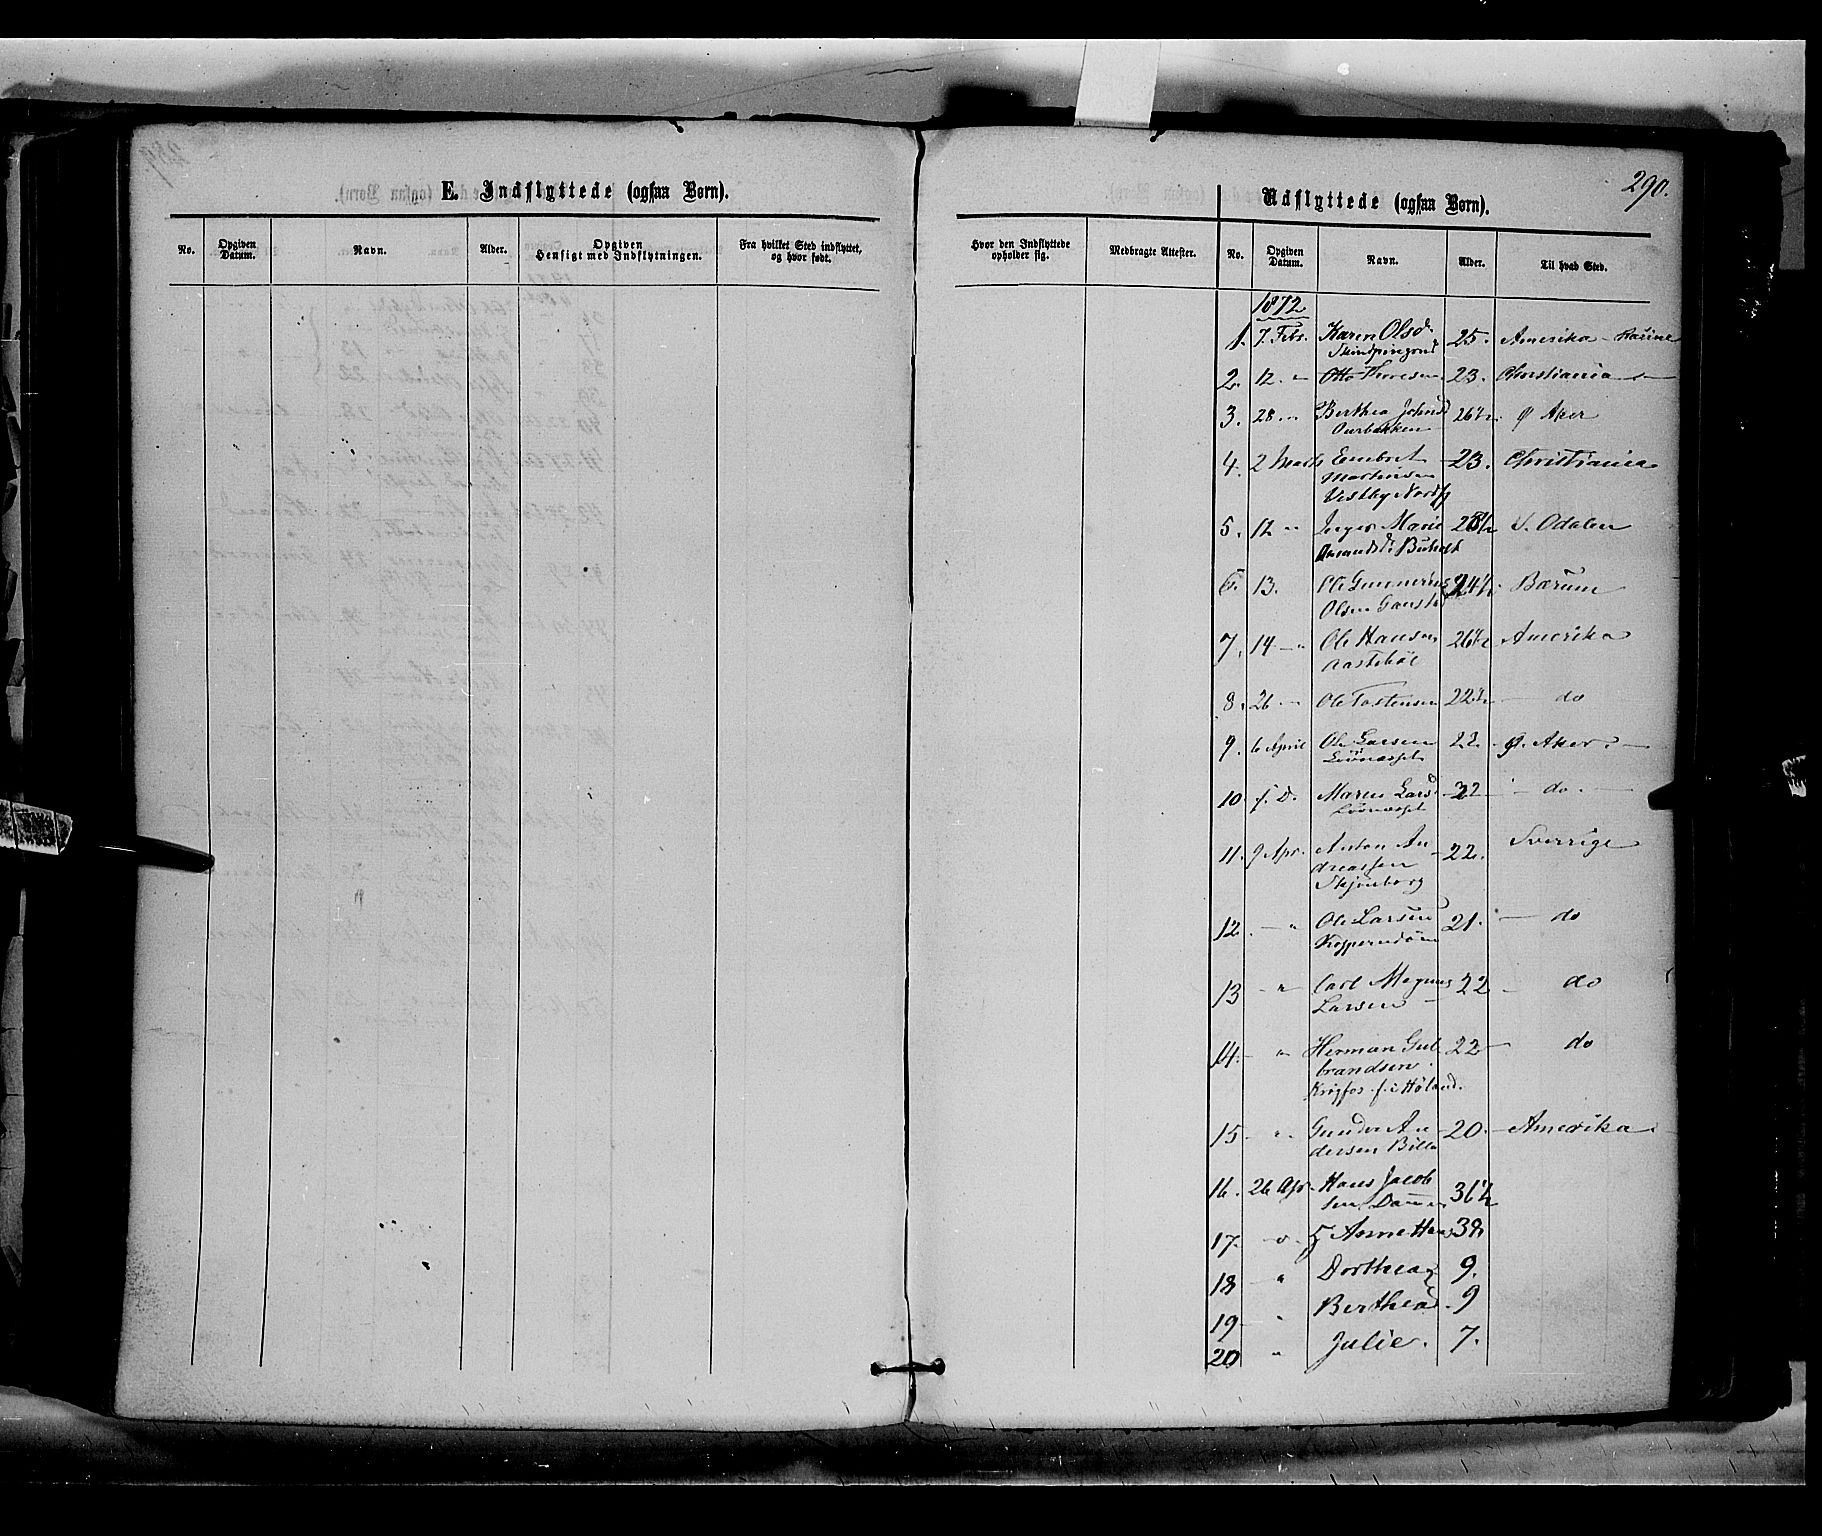 290.
E. Indflyttede (ogsaa Børn).
No.
Opgiven Datum.
Navn.
Alder.
Opgiven Hensigt med Indflytningen.
Fra hvilket Sted indflyttet, og hvor født.
Hvor den Indflyttede opholder sig.
Medbragte Attester.
Udflyttede (ogsaa Børn).
No.
Opgiven Datum.
Navn.
Alder.
Til hvad Sted.
1872
1. 7. Febr. Karen Olsd. 25. Amerika - Racine
2. 12. " Otto Thoresen 23. Christiania
3. 28 " Berthea Johnsd 26½ Ø Aker
Ourbakken
4. 2 Marts Embret 23. Christiania
Martinsen
Vestby Nordf
5. 12 " Inger Marie 28½ S. Odalen
Amundsd.
6. 13. Ole Gunnerius 24½ Bærum
Olsen
7. 14 " Ole Hansen 26½ Amerika
8. 26 " Ole Tostensen 22½ do
9. 6 April Ole Larsen 22. Ø. Aker
10. s. D. Maren Larsd 32 do.
11. 9 Apr. Anton An 22. Sverrige
dreassen
Skjønborg
12. " Ole Larsen 21. do
13 " Carl Magnus 22 do
Larsen
14. " Herman Gul 22 do
brandsen
f. i Høland.
15 " Gunder An 20. Amerika
dersen
16. 26 Apr. Hans Jacob 36½
sen
17. " Anne 38
18 " Dorthea 9.
19 " Berthea 9
20 " Julie. 7.